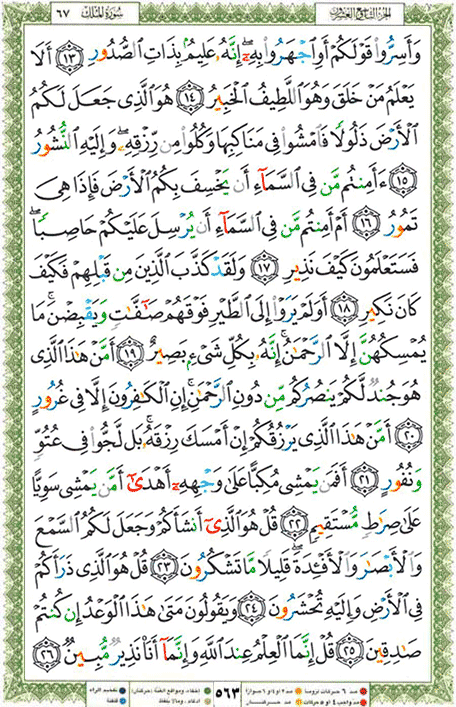 سورة الملك ٦٧
وَأَسِرُّوا۟ قَوْلَكُمْ أَوِ ٱجْهَرُوا۟ بِهِۦٓ ۖ إِنَّهُۥ عَلِيمٌۢ بِذَاتِ ٱلصُّدُورِ ۝١٣ أَلَا
يَعْلَمُ مَنْ خَلَقَ وَهُوَ ٱللَّطِيفُ ٱلْخَبِيرُ ۝١٤ هُوَ ٱلَّذِى جَعَلَ لَكُمُ
ٱلْأَرْضَ ذَلُولًا فَٱمْشُوا۟ فِى مَنَاكِبِهَا وَكُلُوا۟ مِن رِّزْقِهِۦ ۖ وَإِلَيْهِ ٱلنُّشُورُ
۝١٥ ءَأَمِنتُم مَّن فِى ٱلسَّمَآءِ أَن يَخْسِفَ بِكُمُ ٱلْأَرْضَ فَإِذَا هِىَ
تَمُورُ ۝١٦ أَمْ أَمِنتُم مَّن فِى ٱلسَّمَآءِ أَن يُرْسِلَ عَلَيْكُمْ حَاصِبًا ۖ
فَسَتَعْلَمُونَ كَيْفَ نَذِيرِ ۝١٧ وَلَقَدْ كَذَّبَ ٱلَّذِينَ مِن قَبْلِهِمْ فَكَيْفَ
كَانَ نَكِيرِ ۝١٨ أَوَلَمْ يَرَوْا۟ إِلَى ٱلطَّيْرِ فَوْقَهُمْ صَٰٓفَّٰتٍ وَيَقْبِضْنَ ۚ مَا
يُمْسِكُهُنَّ إِلَّا ٱلرَّحْمَٰنُ ۚ إِنَّهُۥ بِكُلِّ شَىْءٍۭ بَصِيرٌ ۝١٩ أَمَّنْ هَٰذَا ٱلَّذِى
هُوَ جُندٌ لَّكُمْ يَنصُرُكُم مِّن دُونِ ٱلرَّحْمَٰنِ ۚ إِنِ ٱلْكَٰفِرُونَ إِلَّا فِى غُرُورٍ
۝٢٠ أَمَّنْ هَٰذَا ٱلَّذِى يَرْزُقُكُمْ إِنْ أَمْسَكَ رِزْقَهُۥ ۚ بَل لَّجُّوا۟ فِى عُتُوٍّ
وَنُفُورٍ ۝٢١ أَفَمَن يَمْشِى مُكِبًّا عَلَىٰ وَجْهِهِۦٓ أَهْدَىٰٓ أَمَّن يَمْشِى سَوِيًّا
عَلَىٰ صِرَٰطٍ مُّسْتَقِيمٍ ۝٢٢ قُلْ هُوَ ٱلَّذِىٓ أَنشَأَكُمْ وَجَعَلَ لَكُمُ ٱلسَّمْعَ
وَٱلْأَبْصَٰرَ وَٱلْأَفْـِٔدَةَ ۖ قَلِيلًا مَّا تَشْكُرُونَ ۝٢٣ قُلْ هُوَ ٱلَّذِى ذَرَأَكُمْ
فِى ٱلْأَرْضِ وَإِلَيْهِ تُحْشَرُونَ ۝٢٤ وَيَقُولُونَ مَتَىٰ هَٰذَا ٱلْوَعْدُ إِن كُنتُمْ
صَٰدِقِينَ ۝٢٥ قُلْ إِنَّمَا ٱلْعِلْمُ عِندَ ٱللَّهِ وَإِنَّمَآ أَنَا۠ نَذِيرٌ مُّبِينٌ ۝٢٦
٥٦٣